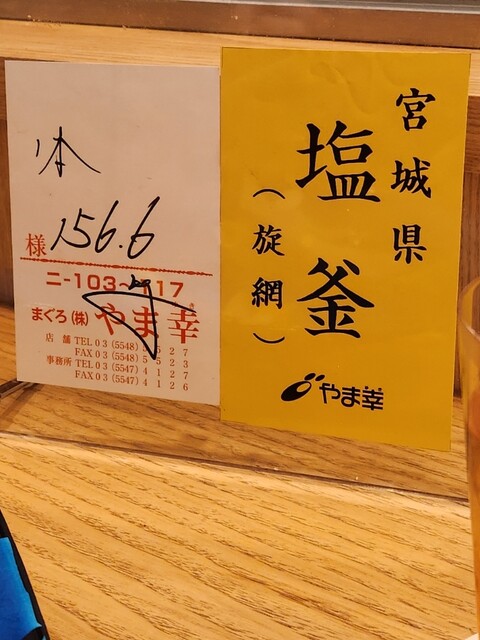 本
様 156.6
ニ-103~117
まぐろ(株)やま幸
店舗 TEL03(5548)
FAX03(5548)
事務所 TEL03(5547)4127
FAX03(5547)4126
宮城県
塩釜
(旋網)
やま幸